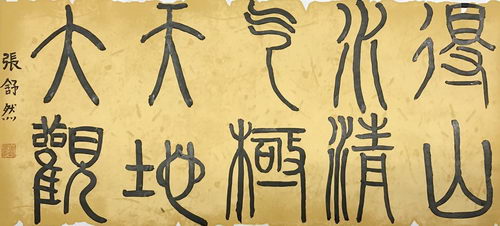 得山
水清
气極
天地
大觀
張舒然